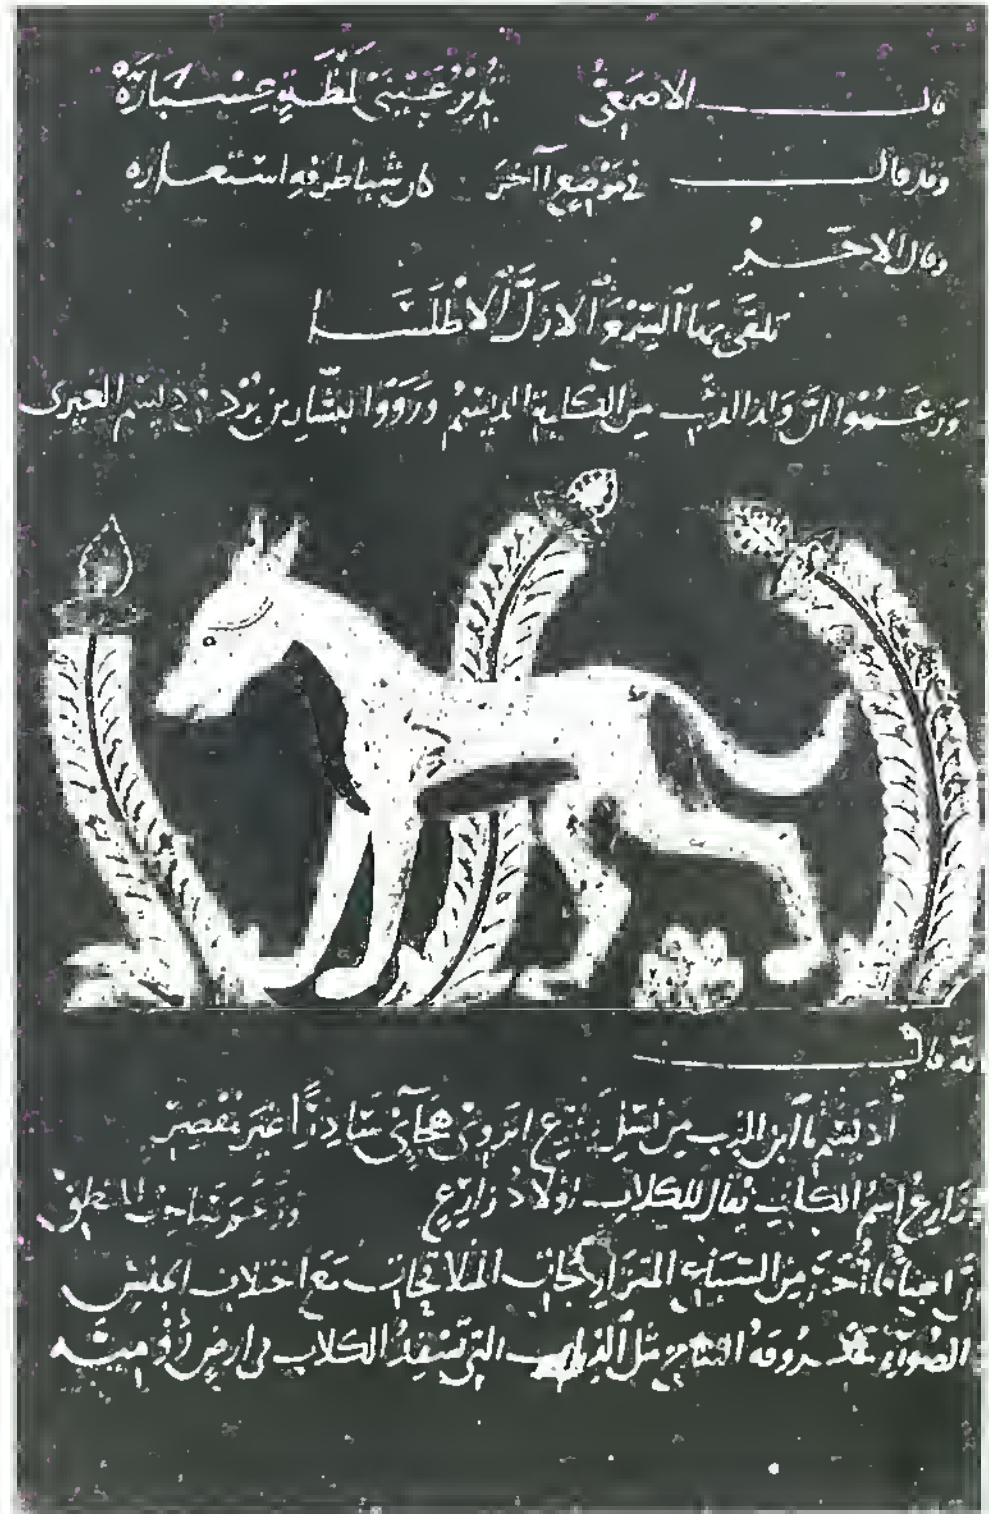 قال الاصمعي يدير عيني لمظة عسبارة
وقد قال في موضع آخر كأن شباطرفه استعاره
وقال الاخير
تلقى بها السمع الازل الاطلسا
وزعموا ان ولد الذئب من الكلبة الديسم ورووا لبشار بن برد في ديسم العنبري
انه قال
أديسم يا ابن الذئب من نسل زارع اتروي هجائي سادرا غير مقصر
زارع اسم الكلب يقال للكلاب اولاد زارع وزعم صاحب المنطق
اخر من السباع المتزاوجات المتلاقحات مع اختلاف الجنس
مثل الذئاب التي تسفد الكلاب في ارض